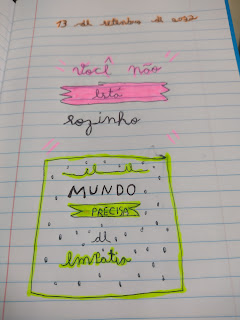 13 de setembro de 2022
Você não
Está
sozinho
O
MUNDO
PRECISA
de
Empatia